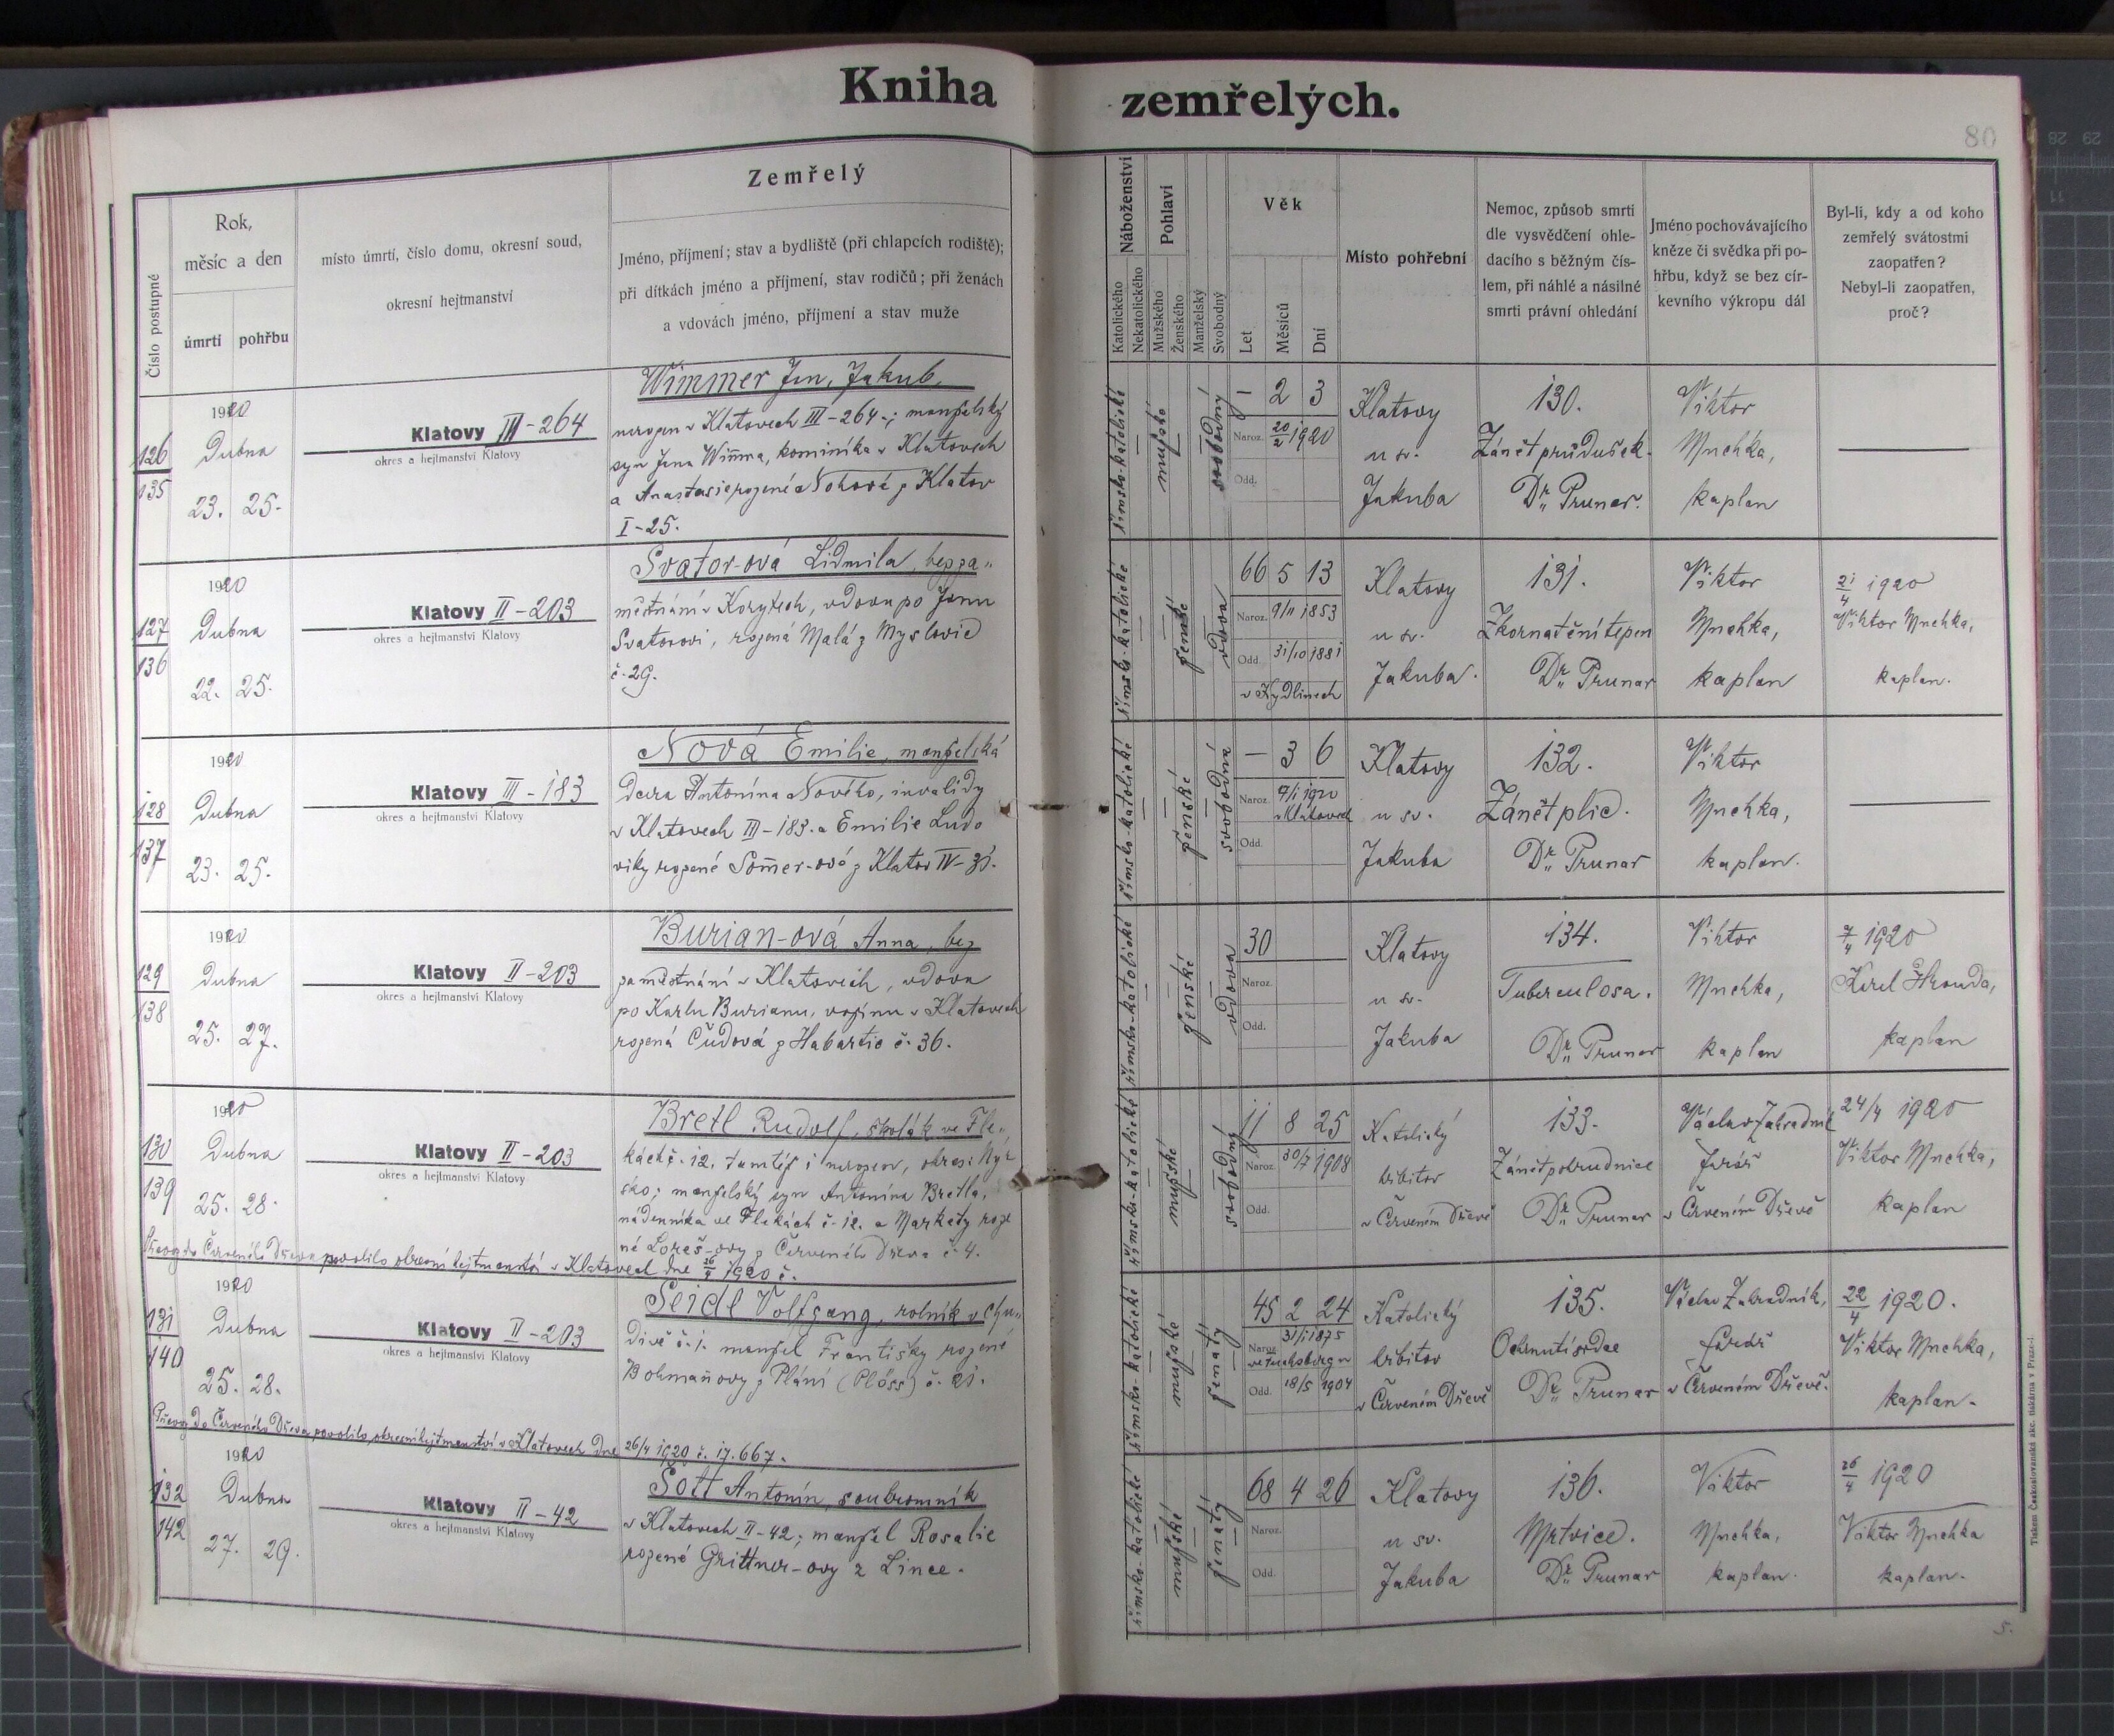 Kniha zemřelých.
80
Číslo postupné
Rok,
měsíc a den
úmrtí
pohřbu
místo úmrtí, číslo domu, okresní soud,
okresní hejtmanství
Zemřelý
Jméno, příjmení; stav a bydliště (při chlapcích rodiště);
při dítkách jméno a příjmení, stav rodičů; při ženách
a vdovách jméno, příjmení a stav muže
Náboženství
Katolického
Nekatolického
Pohlaví
Mužského
Ženského
Manželský
Svobodný
Věk
Let
Měsíců
Dní
Místo pohřební
Nemoc, způsob smrti
dle vysvědčení ohle-
dacího s běžným čís-
lem, při náhlé a násilné
smrti právní ohledání
Jméno pochovávajícího
kněze či svědka při po-
hřbu, když se bez cír-
kevního výkropu dál
Byl-li, kdy a od koho
zemřelý svátostmi
zaopatřen?
Nebyl-li zaopatřen,
proč?
126
135
1920
Dubna
23. 25.
Klatovy III-264
okres a hejtmanství Klatovy
Wimmer Jan, Jakub,
narozen v Klatovech III-264-; manželský
syn Jana Wimra, kominíka v Klatovech
a Anastasie rozené Nohové z Klatov
I-25.
římsko-katolické
mužské
svobodný
1 2 3
Naroz. 20/2 1920
Odd.
Klatovy
u sv.
Jakuba
130.
Zánět průdušek.
Dr. Prunar.
Viktor
Mnehka,
kaplan
127
136
1920
Dubna
22. 25.
Klatovy II-203
okres a hejtmanství Klatovy
Svator-ová Lidmila, bez za-
městnání v Korytech, vdova po Janu
Svatorovi, rozená Malá z Myslovic
č. 29.
římsko-katolické
ženské
vdova
66 5 13
Naroz. 9/11 1853
Odd. 31/10 1881
v Kydlinech
Klatovy
u sv.
Jakuba.
131.
Zkornatění tepen
Dr. Prunar
Viktor
Mnehka,
kaplan
21/4 1920
Viktor Mnehka,
kaplan.
128
137
1920
Dubna
23. 25.
Klatovy III-183
okres a hejtmanství Klatovy
Nová Emilie, manželská
dcera Antonína Nového, invalidy
v Klatovech III-183. a Emilie Ludo
viky rozené Somer-ové z Klatov IV-31.
římsko-katolické
ženské
svobodná
— 3 6
Naroz. 1920
v Klatovech
Odd.
Klatovy
u sv.
Jakuba
132.
Zánět plic.
Dr. Prunar
Viktor
Mnehka,
kaplan.
129
138
1920
Dubna
25. 27.
Klatovy II-203
okres a hejtmanství Klatovy
Burian-ová Anna, bez
zaměstnání v Klatovech, vdova
po Karlu Burianu, vojínu v Klatovech
rozená Čudová z Habartic č. 36.
římsko-katolické
ženské
vdova
30
Naroz.
Odd.
Klatovy
u sv.
Jakuba
134.
Tuberculosa.
Dr. Prunar
Viktor
Mnehka,
kaplan
7/4 1920
Karel Hrouda,
kaplan
130
139
1920
Dubna
25. 28.
Klatovy II-203
okres a hejtmanství Klatovy
Bretl Rudolf, školák ve Fle-
kách č. 12. tamtéž i narozen, okres: Nýr
sko; manželský syn Antonína Bretla,
nádenníka ve Flekách č. 12. a Markety roze
né Loreš-ovy z Červeného Dřeva č. 4.
Převoz do Červeného Dřeva povolilo okresní hejtmanství v Klatovech dne 26/4 1920 č.
římsko-katolické
mužské
svobodný
11 8 25
Naroz. 30/7 1908
Odd.
Katolický
hřbitov
v Červeném Dřevě
133.
Zánět pobrudnice
Dr. Prunar
Václav Zahradník
farář
v Červeném Dřevě
24/4 1920
Viktor Mnehka,
kaplan
131
140
1920
Dubna
25. 28.
Klatovy II-203
okres a hejtmanství Klatovy
Seidl Volfgang, rolník v Chu-
divě č. 1. manžel Františky rozené
Bohmanovy z Pláni (Plöss) č. 21.
Převoz do Červeného Dřeva povolilo okresní hejtmanství v Klatovech dne 26/4 1920 č. 17.667.
římsko-katolické
mužské
ženatý
45 2 24
Naroz. 31/1 1875
ve Fuchsbergu
Odd. 18/5 1904
Katolický
hřbitov
v Červeném Dřevě
135.
Ochrnutí srdce
Dr. Prunar
Václav Zahradník,
farář
v Červeném Dřevě.
22/4 1920.
Viktor Mnehka,
kaplan.
132
142
1920
Dubna
27. 29.
Klatovy II-42
okres a hejtmanství Klatovy
Šott Antonín, soukromník
v Klatovech II-42; manžel Rosalie
rozené Grittner-ovy z Lince.
římsko-katolické
mužské
ženatý
68 4 26
Naroz.
Odd.
Klatovy
u sv.
Jakuba
136.
Mrtvice.
Dr. Prunar
Viktor
Mnehka,
kaplan.
26/4 1920
Viktor Mnehka
kaplan.
Tiskem Československá akc. tiskárna v Praze-I.
5.